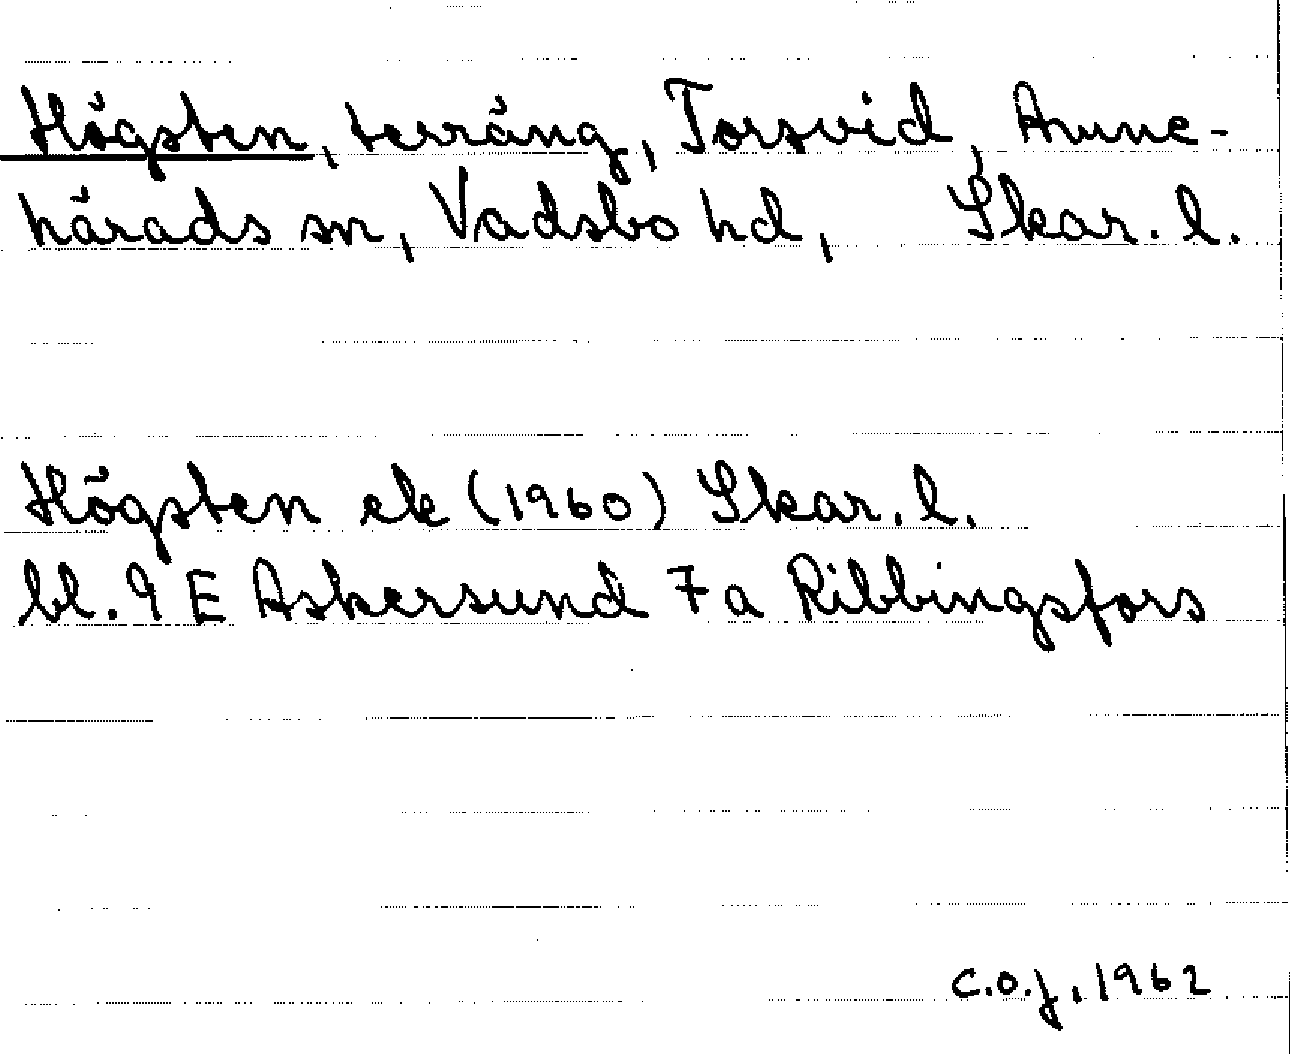 Högsten, terräng, Torsvid, Amne-
härads sn, Vadsbo hd, Skar. l.
Högsten ek (1960) Skar. l.
bl. 9 E Askersund 7a Ribbingsfors
C.O.J. 1962